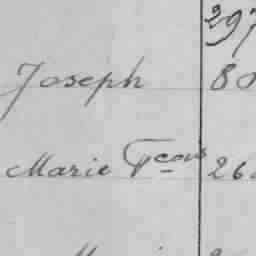 297
Joseph 80
Marie Fcoise 26